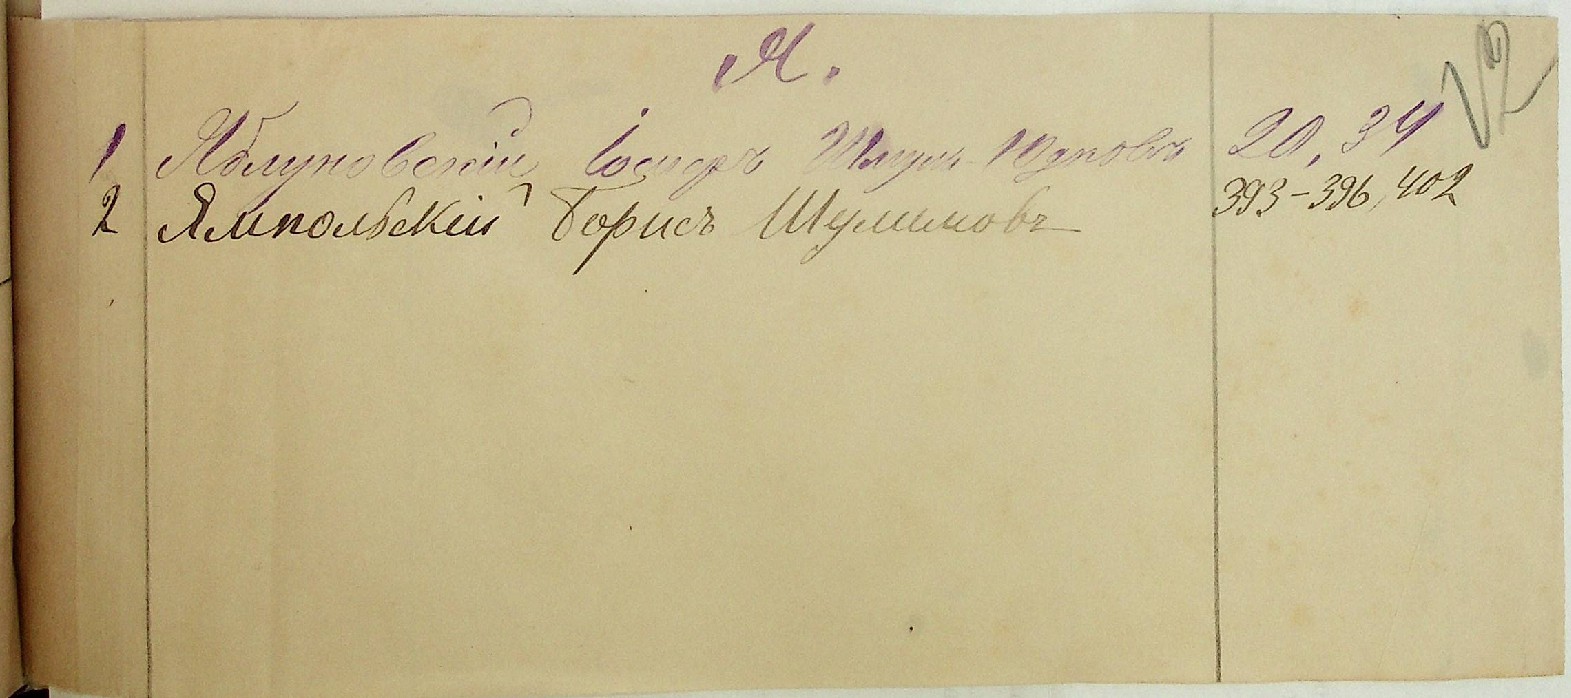 Я.
√2
1 Яблуновскій Іосифъ Шмуль- 20, 34
2 Ямпольскій Борисъ Шулимовъ 393-396, 402